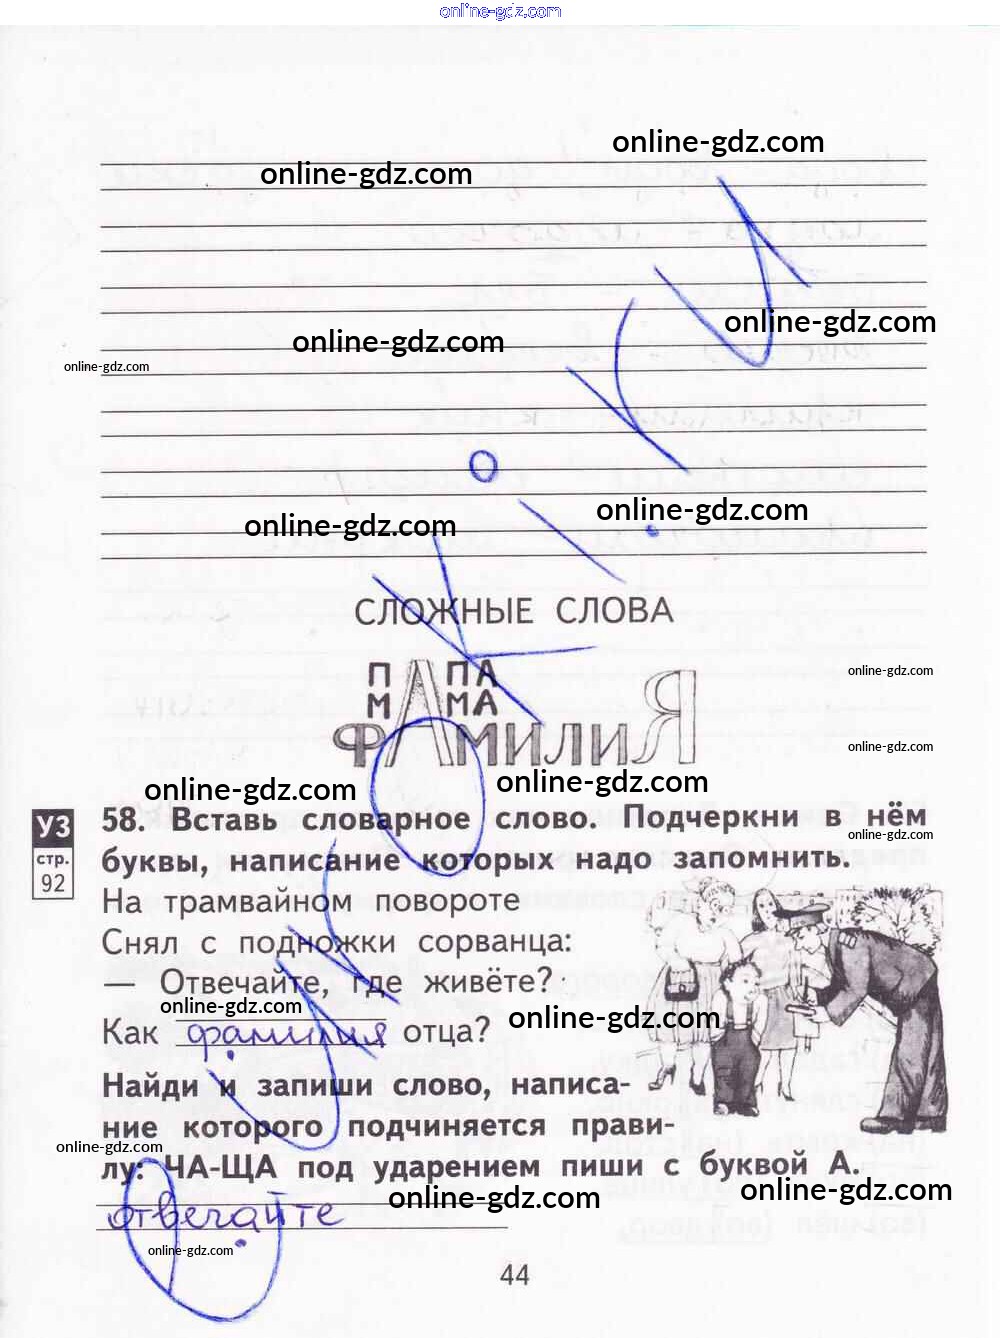 online-gdz.com
online-gdz.com
online-gdz.com
online-gdz.com
online-gdz.com
online-gdz.com
online-gdz.com
online-gdz.com
СЛОЖНЫЕ СЛОВА
online-gdz.com
ПАПА
МАМА
ФАМИЛИЯ
online-gdz.com
online-gdz.com
online-gdz.com
УЗ
стр.
92
58. Вставь словарное слово. Подчеркни в нём
online-gdz.com
буквы, написание которых надо запомнить.
На трамвайном повороте
Снял с подножки сорванца:
— Отвечайте, где живёте?
online-gdz.com
online-gdz.com
Как фамилия отца?
Найди и запиши слово, написа-
ние которого подчиняется прави-
online-gdz.com
лу: ЧА-ЩА под ударением пиши с буквой А.
online-gdz.com
online-gdz.com
отвечайте
online-gdz.com
44